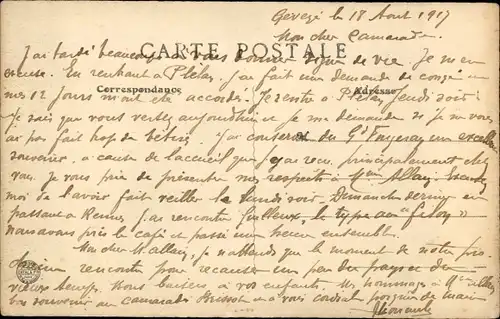 Gevezé le 18 Aout 1917
Mon cher Camarade
CARTE POSTALE
J'ai tardé beaucoup à vous donner signe de vie. Je m'en
excuse. En rentrant à Plélan, j'ai fait une demande de congé et
Correspondance
Adresse
mes 12 jours m'ont été accordés. Je rentre à Plélan Jeudi soir.
Je sais que vous restez aujourd'hui et je me demande si je ne vous
ai pas fait trop de bêtises. J'ai conservé du Gd Fougeray un excellent
souvenir à cause de l'accueil que j'ai reçu, principalement chez
vous. Je vous prie de présenter mes respects à Mme Allain, Excusez
moi de l'avoir fait veiller le lundi soir. Dimanche dernier en
passant à Rennes j'ai rencontré le type au
Nous avons pris le café et passé une heure ensemble.
Mon cher M. Allain, je n'attends que le moment de notre
rencontre pour recauser un peu du pays et du
vieux temps. Nous baisers à vos enfants. Mes hommages à Mme Allain
bon souvenir au camarade Brisson et à vous cordiale poignée de main